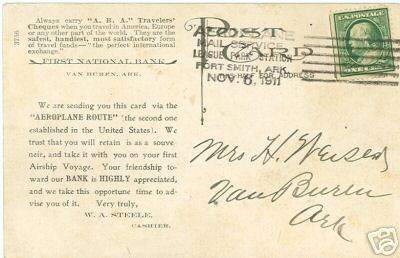 Always carry "A. B. A." Travelers'
Cheques when you travel in America, Europe
or any other part of the world. They are the
safest, handiest, most satisfactory form
of travel funds—"the perfect international
exchange."
3756
FIRST NATIONAL BANK
VAN BUREN, ARK.
We are sending you this card via the
"AEROPLANE ROUTE" (the second one
established in the United States). We
trust that you will retain is as a souve-
neir, and take it with you on your first
Airship Voyage. Your friendship to-
ward our BANK is HIGHLY appreciated,
and we take this opportune time to ad-
vise you of it. Very truly,
W. A. STEELE,
CASHIER.
POST
CARD
MAIL SERVICE
LEAGUE PARK STATION
FORT SMITH, ARK.
NOV. 6, 1911
HALF FOR ADDRESS
U.S. POSTAGE
ONE CENT
Mrs H.
Van Buren
Ark